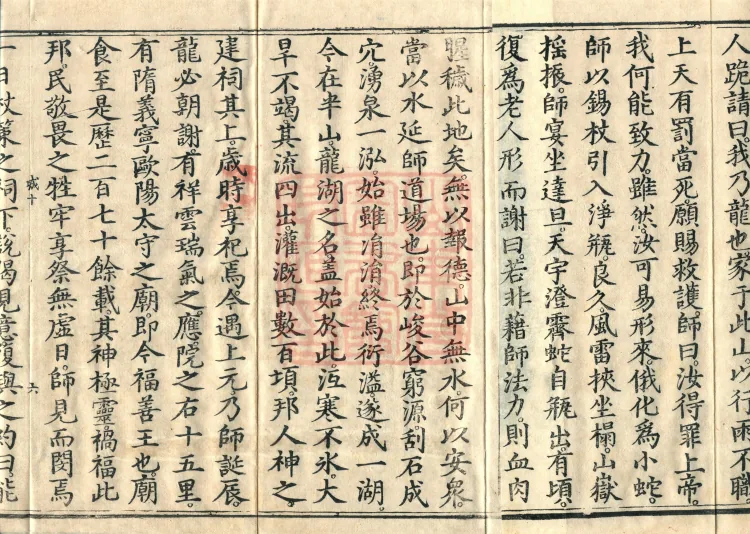 人跪請曰。我乃龍也。家于此山。以行雨不職
上天有罰當死。願賜救護。師曰。汝得罪上帝。
我何能致力。雖然。汝可易形來。俄化為小蛇。
師以錫杖引入淨瓶。良久。風雷挾坐榻。山嶽
搖振。師宴坐達旦。天宇澄霽。蛇自瓶出。有頃。
復為老人形而謝曰。若非藉師法力。則血肉
腥穢此地矣。無以報德。山中無水。何以安眾。
當以水延師道場也。即於峻谷窮源。刮石成
穴。湧泉一泓。始雖涓涓。終焉衍溢。遂成一湖。
今在半山。龍湖之名。蓋始於此。沍寒不氷。大
旱不竭。其流四出。灌溉田數百頃。邦人神之。
建祠其上。歲時享祀焉。今遇上元。乃師誕辰。
龍必朝謝。有祥雲瑞氣之應。院之右十五里。
有隋義寧歐陽太守之廟。即今福善王也。廟
食至是歷二百七十餘載。其神極靈。禍福此
邦。民敬畏之。牲牢享祭無虛日。師見而閔焉
六
一日杖策之祠下。說偈規意復與之約曰。能